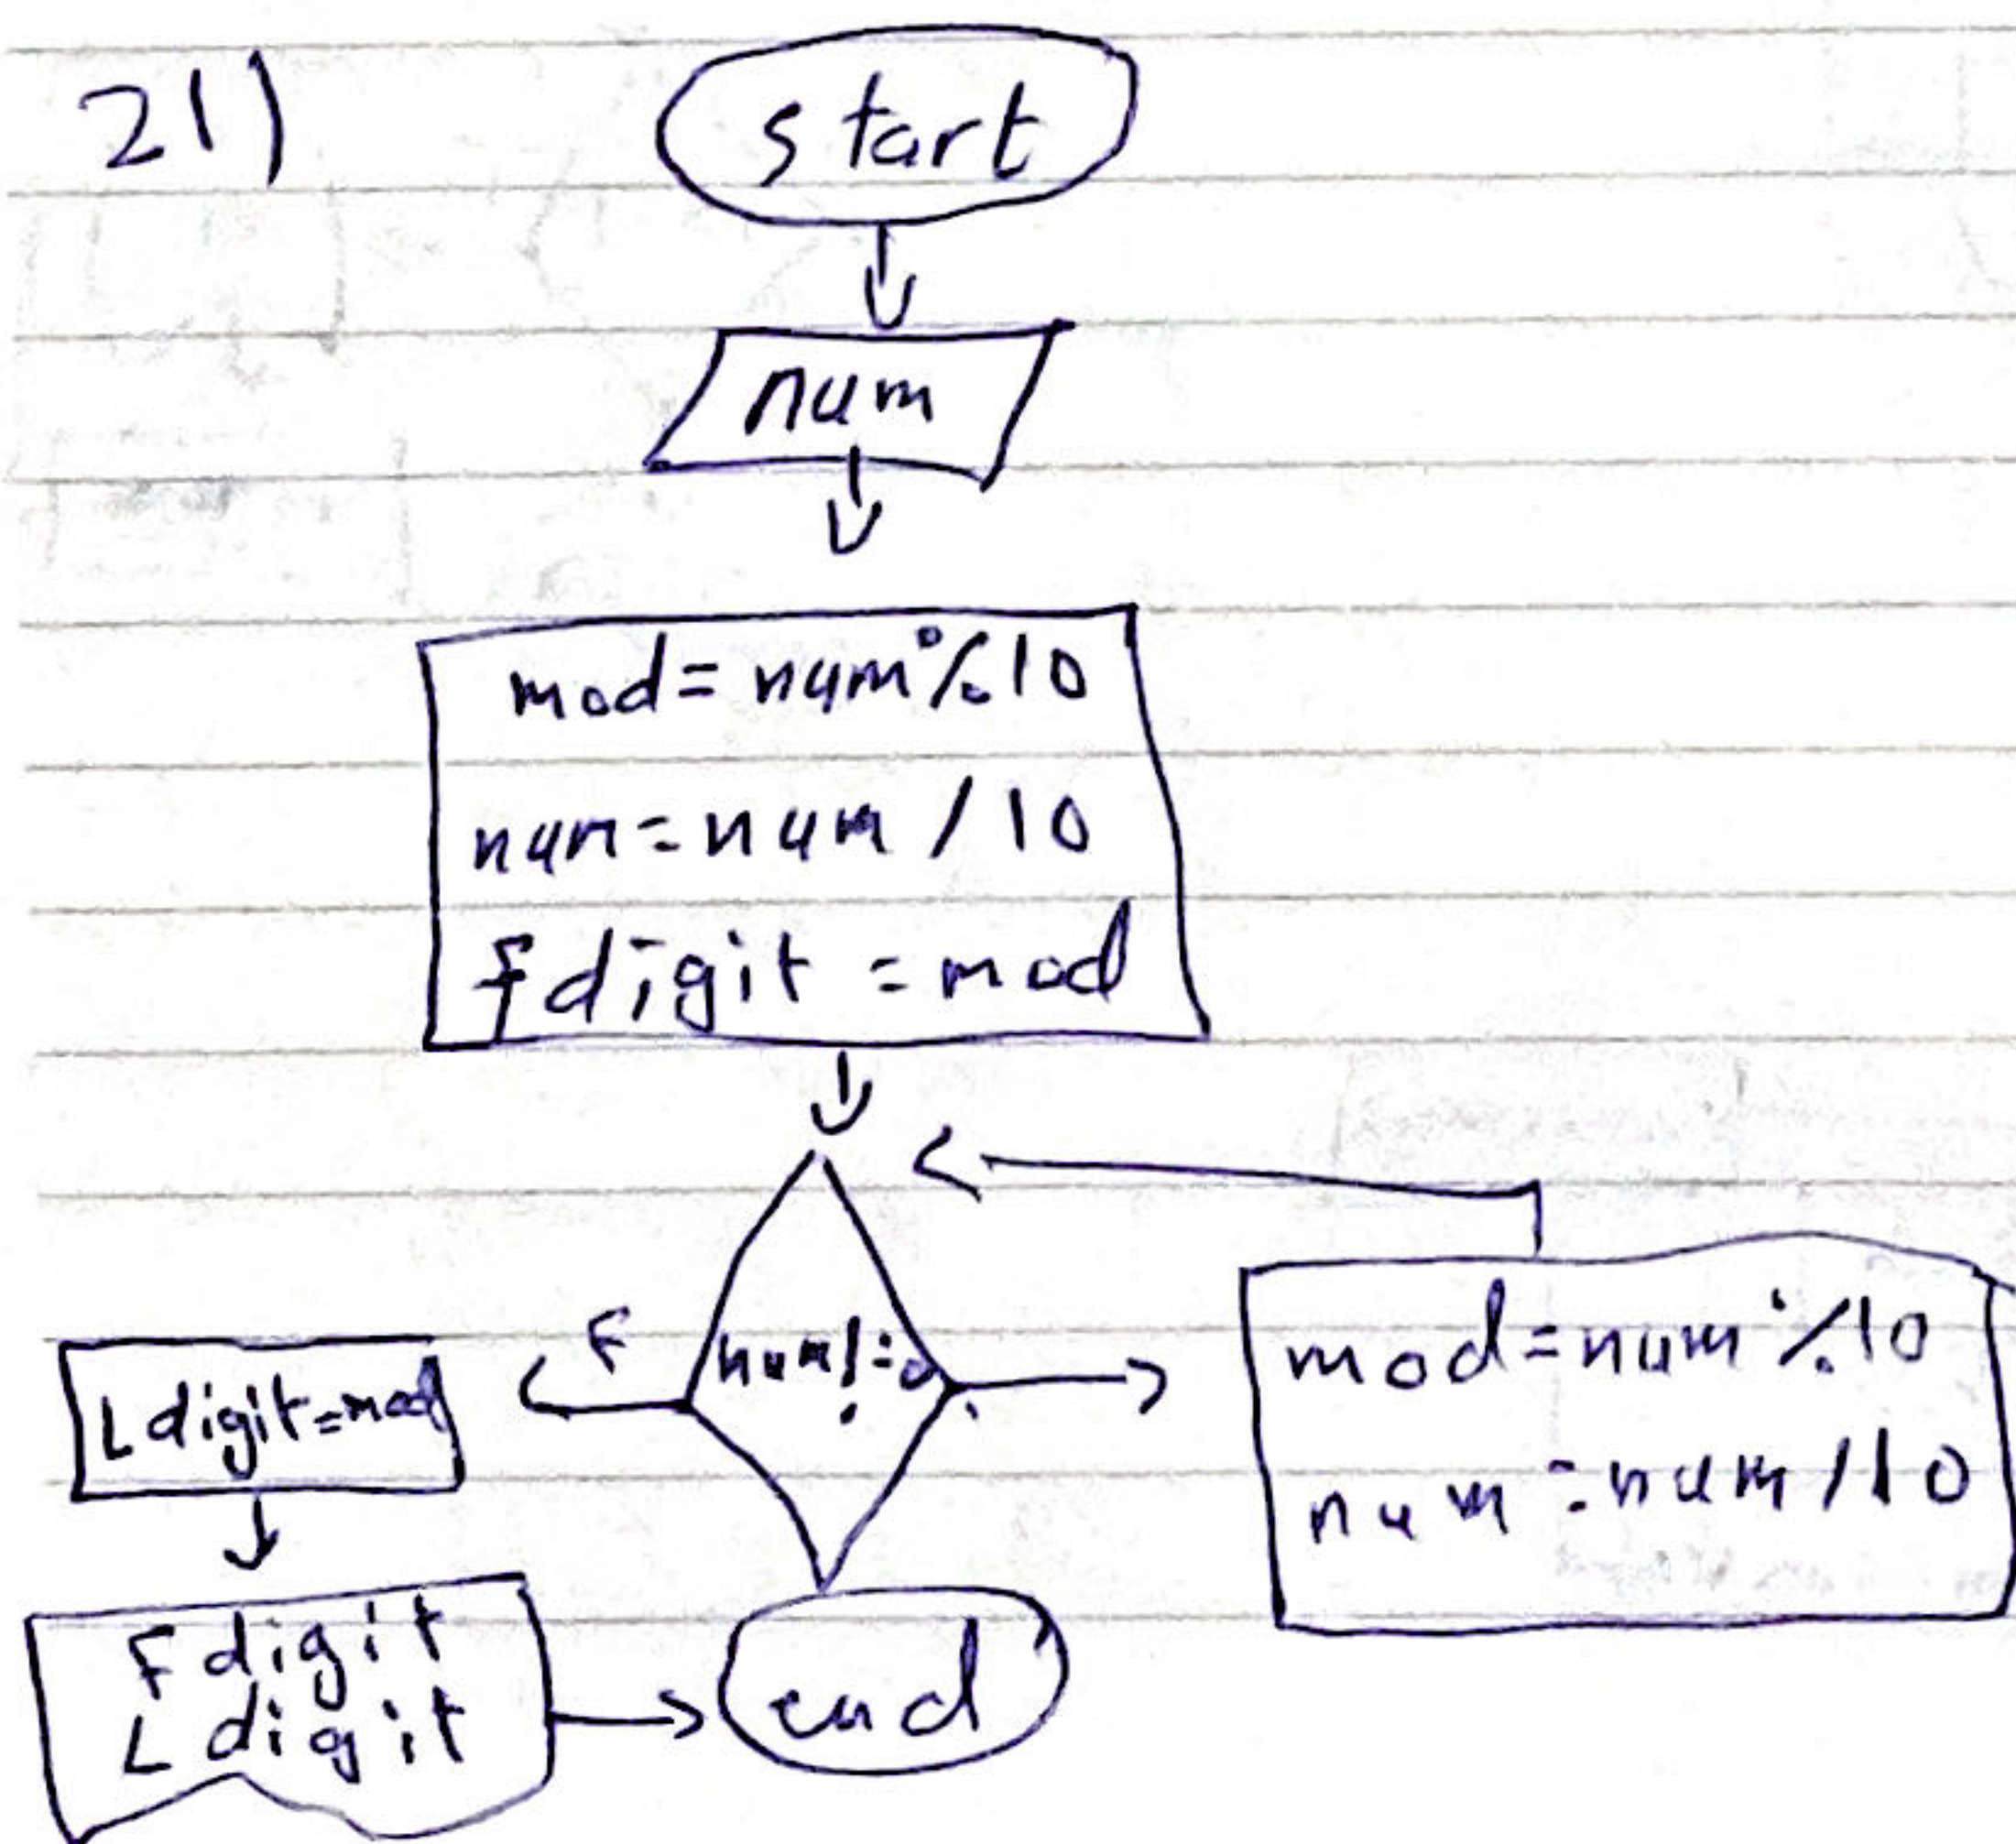 21)
start
num
mod = num % 10
num = num / 10
fdigit = mod
num != 0
F
Ldigit = mod
mod = num % 10
num = num / 10
Fdigit
Ldigit
end